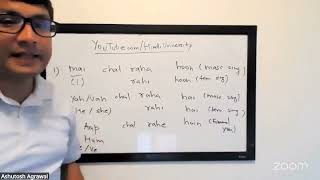 YouTube.com/HindiUniversity
1) mai chal raha hoon (masc sing)
(I) rahi hoon (fem sing)
Yah/Vah chal raha hai (masc sing)
(He/she) rahi hai (fem sing)
Aap chal rahe hain (Formal you)
Hum
/Ve
Ashutosh Agrawal
zoom